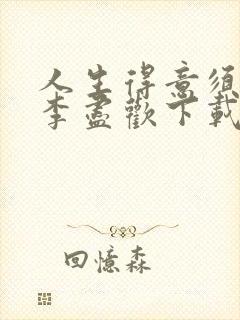 人生得意须
李尽歡下載
回憶森